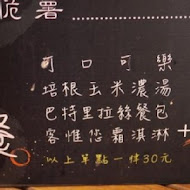 脆薯
可口可樂
培根玉米濃湯
巴特里拉絲餐包
客惟您霜淇淋
以上單點一件30元